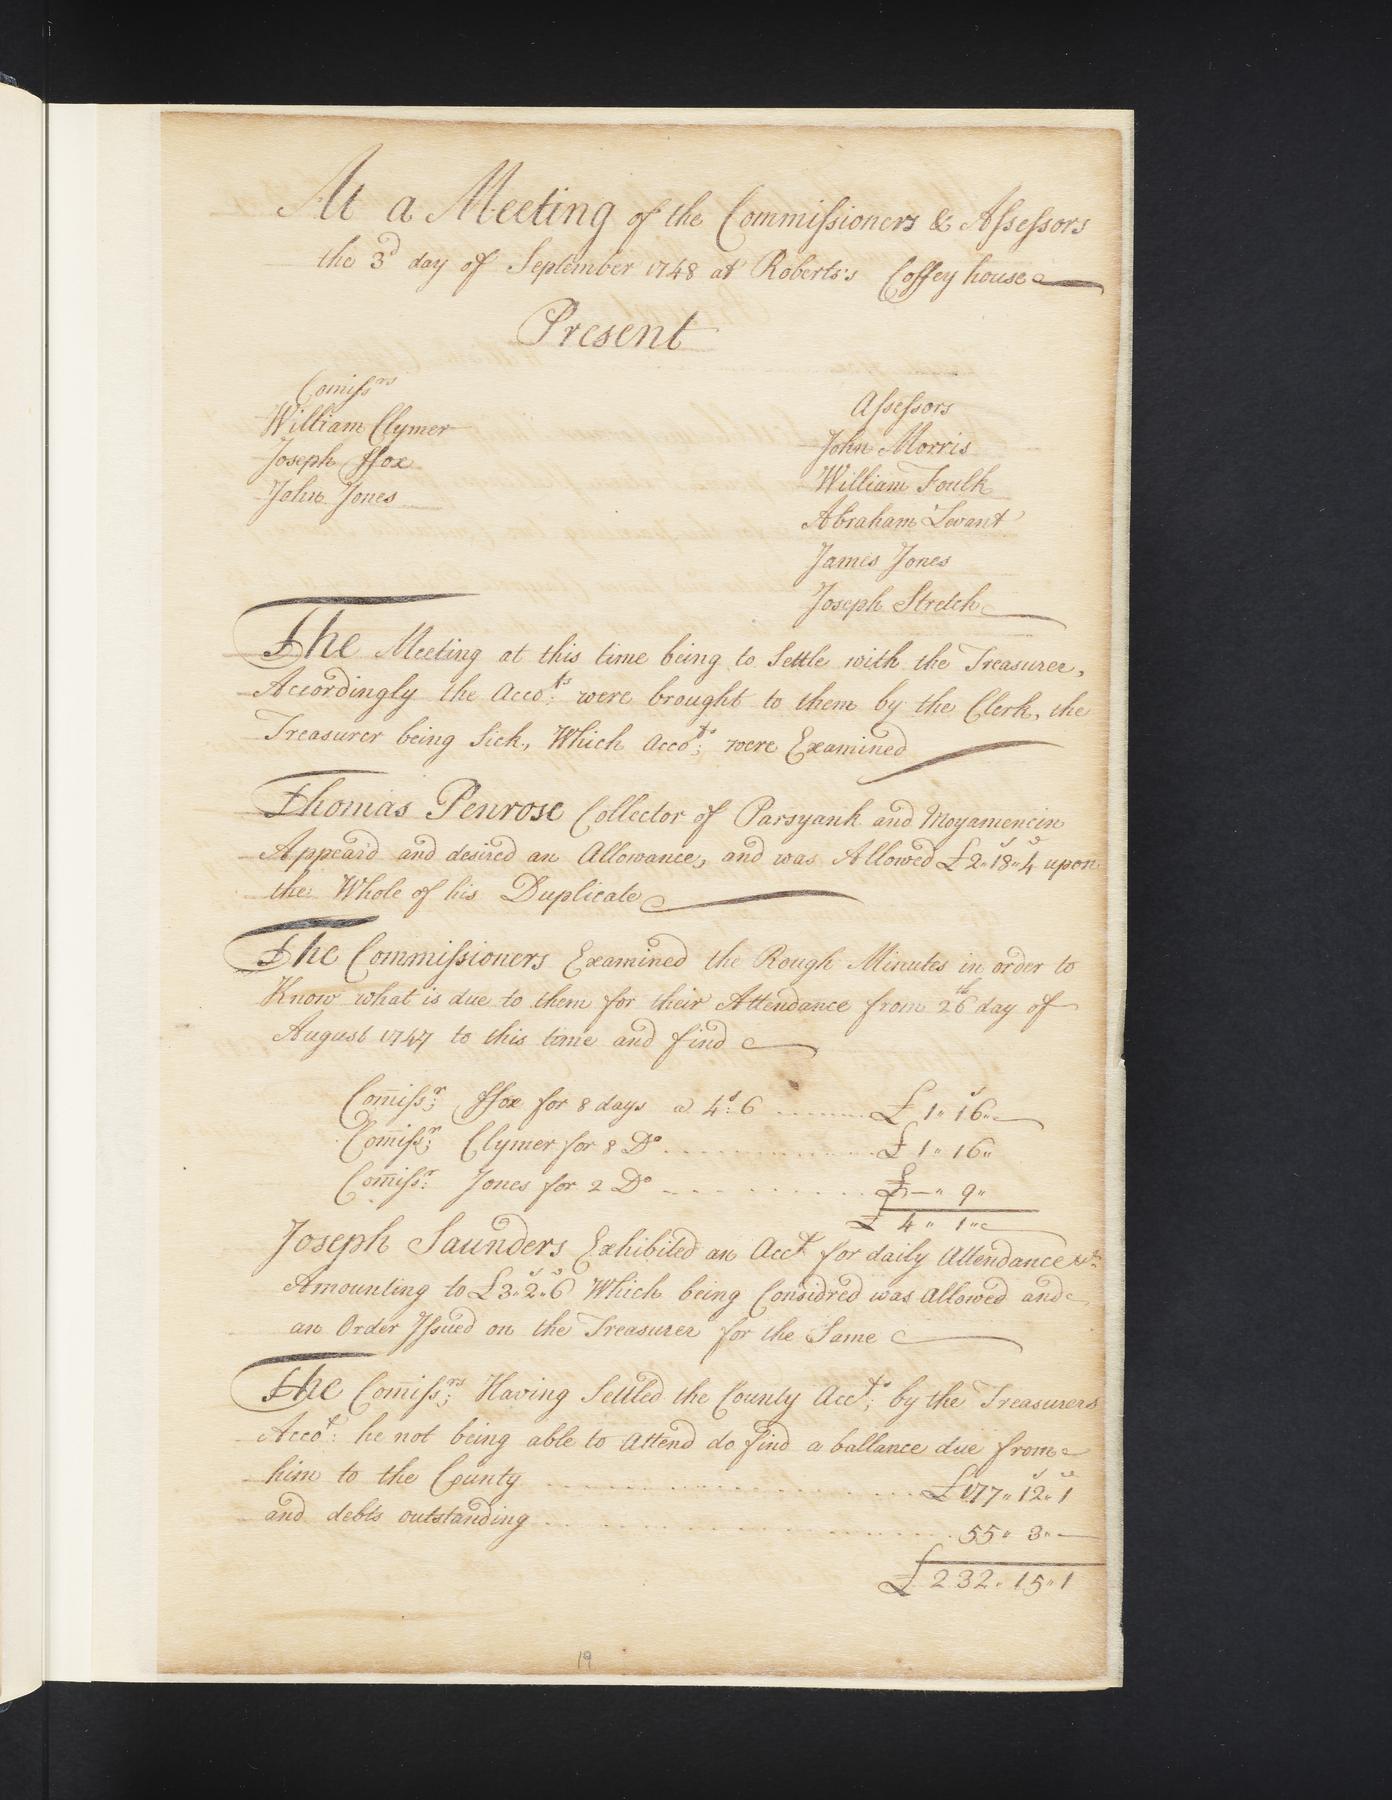 At a Meeting of the Commissioners & Assessors
the 3d day of September 1748 at Roberts's Coffey house
Present
Comissrs
William Clymer
Joseph ffox
John Jones
Assessors
John Morris
William Foulk
Abraham Levant
James Jones
Joseph Stretch
The Meeting at this time being to Settle with the Treasurer,
Accordingly the Acco:ts were brought to them by the Clerk, the
Treasurer being Sick, Which Acco:ts were Examined
Thomas Penrose Collector of Parsyank and Moyamencin
Appear'd and desired an Allowance, and was Allowed £2"18"4 upon
the Whole of his Duplicate
The Commissioners Examined the Rough Minutes in order to
Know what is due to them for their Attendance from 26th day of
August 1747 to this time and find
Comissr: ffox for 8 days a 4s:6 £1"16"
Comissr: Clymer for 8 Do £1"16"
Comissr: Jones for 2 Do £—"9"
£4"1"
Joseph Saunders Exhibited an Acct for daily Attendance &c
Amounting to £3"2"6 Which being Considred was Allowed and
an Order Issued on the Treasurer for the Same
The Comissrs: Having Settled the County Accts: by the Treasurers
Accot: he not being able to Attend do find a ballance due from
him to the County £177"12"1
and debts outstanding 55"3"—
£232"15"1
19